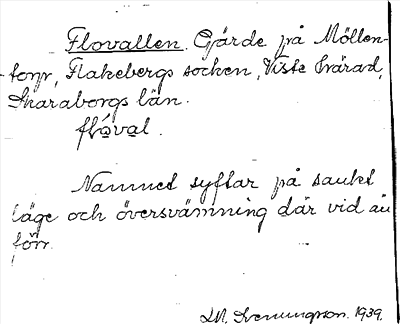 Flovallen. Gärde på Möllen-
torp, Flakebergs socken, Viste härad,
Skaraborgs län.
flåval.
Namnet syftar på sankt
läge och översvämning där vid ån
förr.
Svenungson. 1939.